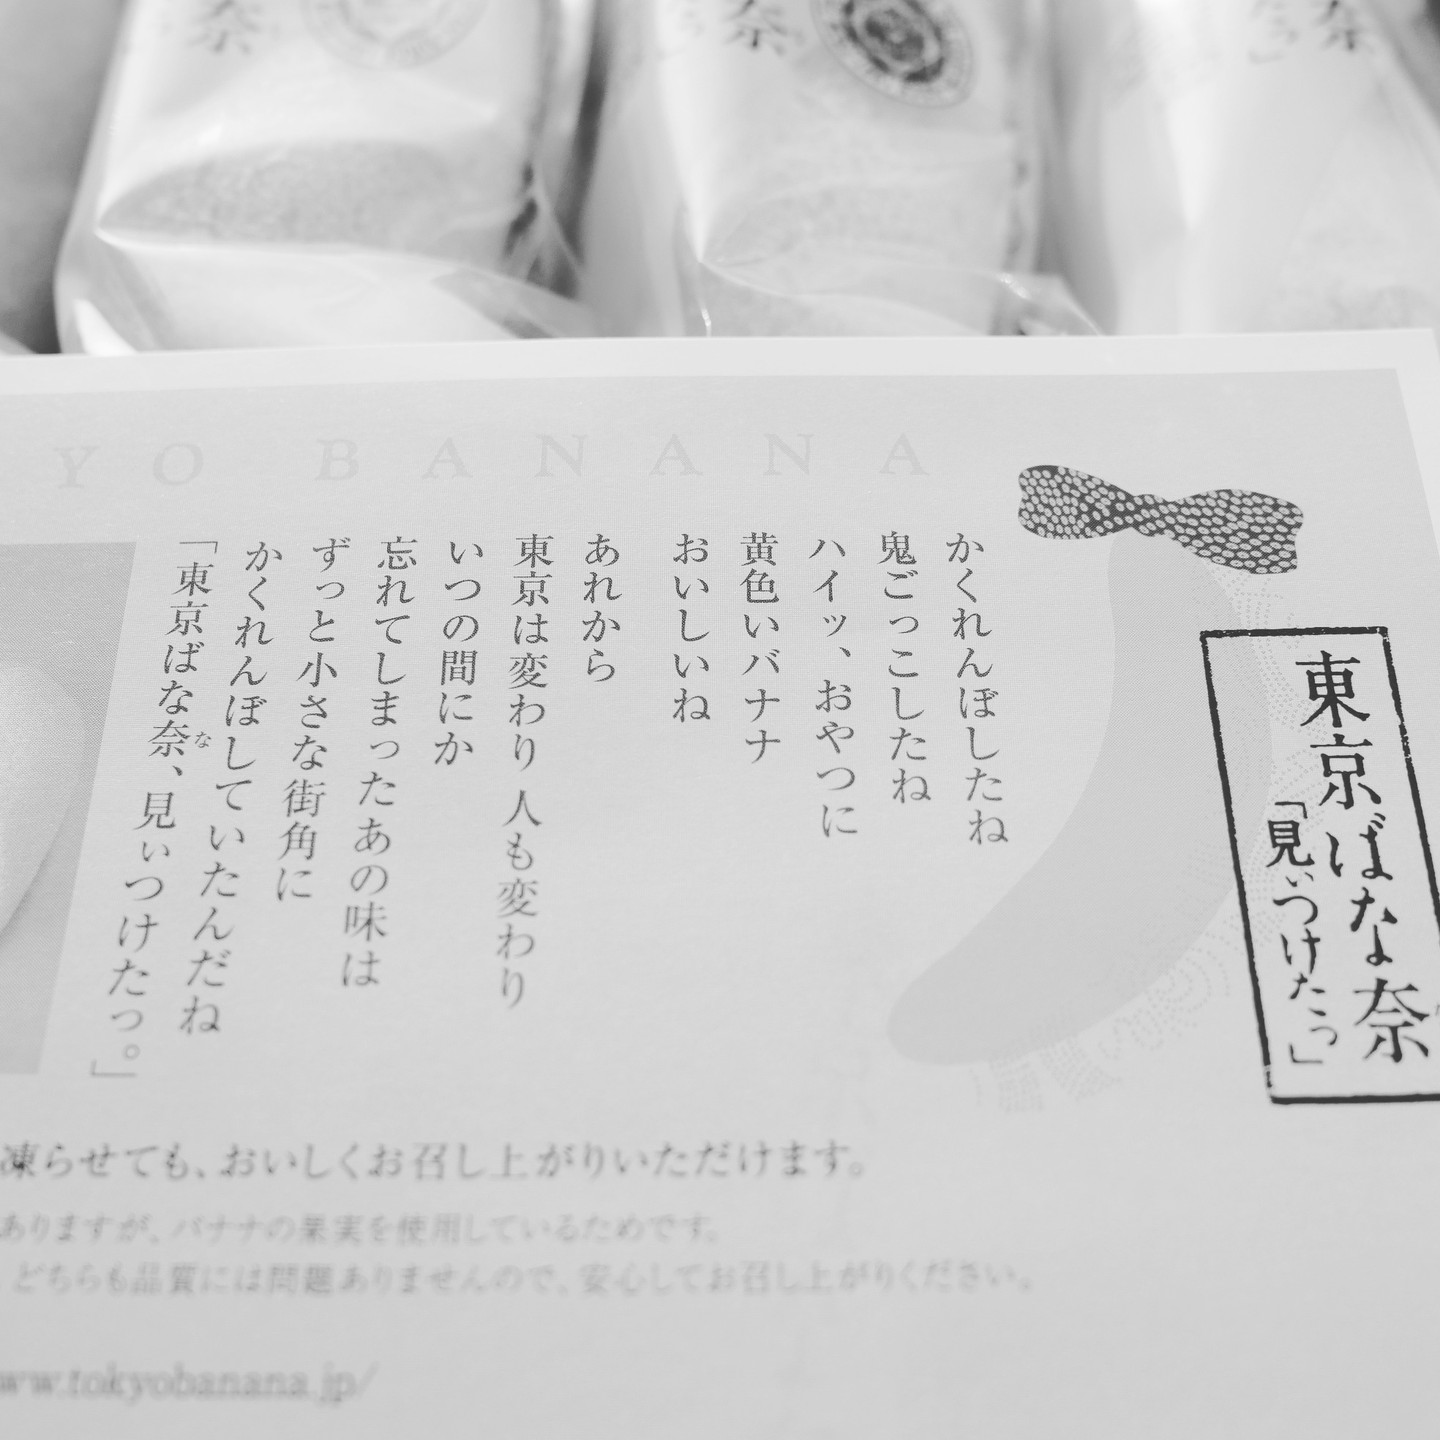 奈
奈
奈
YO BANANA
東京ばな奈
「見ぃつけたっ」
かくれんぼしたね
鬼ごっこしたね
ハイッ、おやつに
黄色いバナナ
おいしいね
あれから
東京は変わり 人も変わり
いつの間にか
忘れてしまったあの味は
ずっと小さな街角に
かくれんぼしていたんだね
「東京ばな奈、見ぃつけたっ。」
な
凍らせても、おいしくお召し上がりいただけます。
ありますが、バナナの果実を使用しているためです。
どちらも品質には問題ありませんので、安心してお召し上がりください。
ww.tokyobanana.jp/